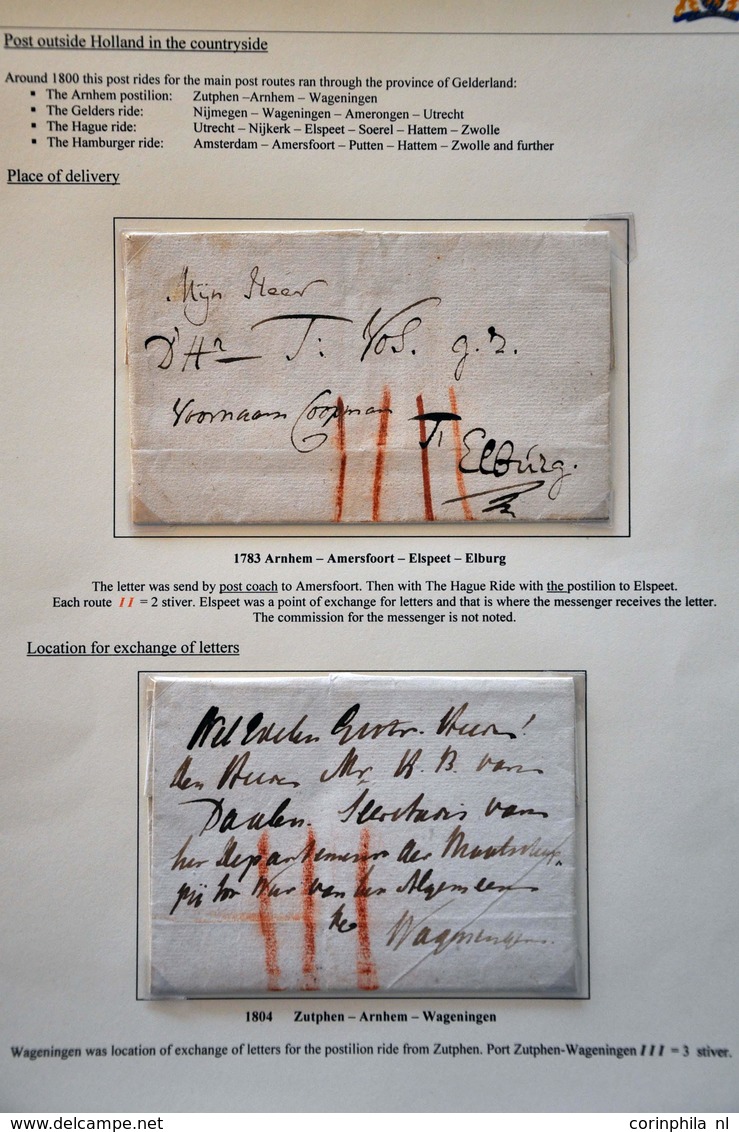 Post outside Holland in the countryside
Around 1800 this post rides for the main post routes ran through the province of Gelderland:
▪ The Arnhem postilion: Zutphen –Arnhem – Wageningen
▪ The Gelders ride: Nijmegen – Wageningen – Amerongen – Utrecht
▪ The Hague ride: Utrecht – Nijkerk – Elspeet – Soerel – Hattem – Zwolle
▪ The Hamburger ride: Amsterdam – Amersfoort – Putten – Hattem – Zwolle and further
Place of delivery
Mijn Heer
D'Hr T: Vos. g. z.
Voornaam Coopman
T: Elburg.
1783 Arnhem – Amersfoort – Elspeet – Elburg
The letter was send by post coach to Amersfoort. Then with The Hague Ride with the postilion to Elspeet.
Each route II = 2 stiver. Elspeet was a point of exchange for letters and that is where the messenger receives the letter.
The commission for the messenger is not noted.
Location for exchange of letters
Wel Edelen Heer!
den Heer Mr. H. B. van
Daalen. Secretaris van
het Departement der Maatschap-
pij tot Nut van het Algemeen
te Wageningen.
1804 Zutphen – Arnhem – Wageningen
Wageningen was location of exchange of letters for the postilion ride from Zutphen. Port Zutphen-Wageningen III = 3 stiver.
www.delcampe.net
corinphila nl